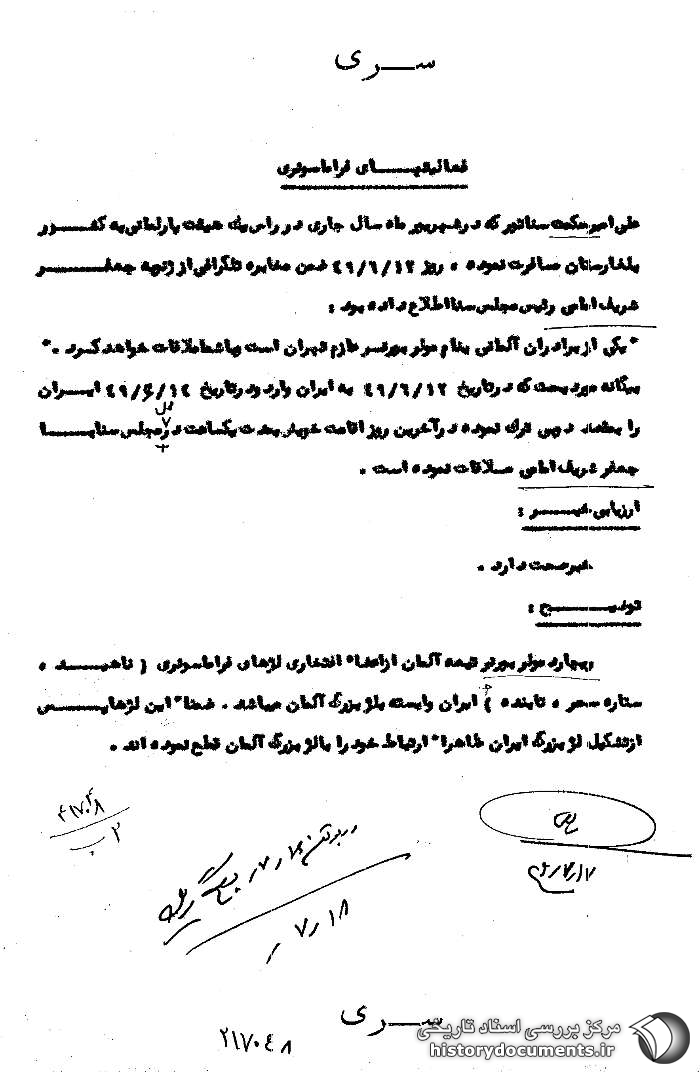 سری
فعالیتهای فراماسونری
علی امیر حکمت سناتور که در شهریور ماه سال جاری در راس یک هیئت پارلمانی به کشور
بلغارستان مسافرت نموده ، روز ۴۹/۶/۱۲ ضمن مخابره تلگرافی از زوریخ جعفر
شریف امامی رئیس مجلس سنا اطلاع داده بود :
" یکی از برادران آلمانی بنام مولر بورنر عازم تهران است و باشما ملاقات خواهد کرد . "
بیگانه موردبحث که در تاریخ ۴۹/۶/۱۲ به ایران وارد و در تاریخ ۴۹/۶/۱۴ ایران
را بمقصد دوبی ترک نموده در آخرین روز اقامت خویش بمدت یکساعت در مجلس سنا با
جعفر شریف امامی ملاقات نموده است .
ارزیابی خبر :
خبر صحت دارد .
توضیح :
ریچارد مولر بورنر تبعه آلمان از اعضاء افتخاری لژهای فراماسونری ( ناهید ،
ستاره سحر ، تابنده ) ایران وابسته بلژ بزرگ آلمان میباشد . ضمناً این لژها پس
از تشکیل لژ بزرگ ایران ظاهراً ارتباط خود را با لژ بزرگ آلمان قطع نموده اند .
۷/۱۸
سری
۲۱۷۰۴۸
مرکز بررسی اسناد تاریخی
historydocuments.ir